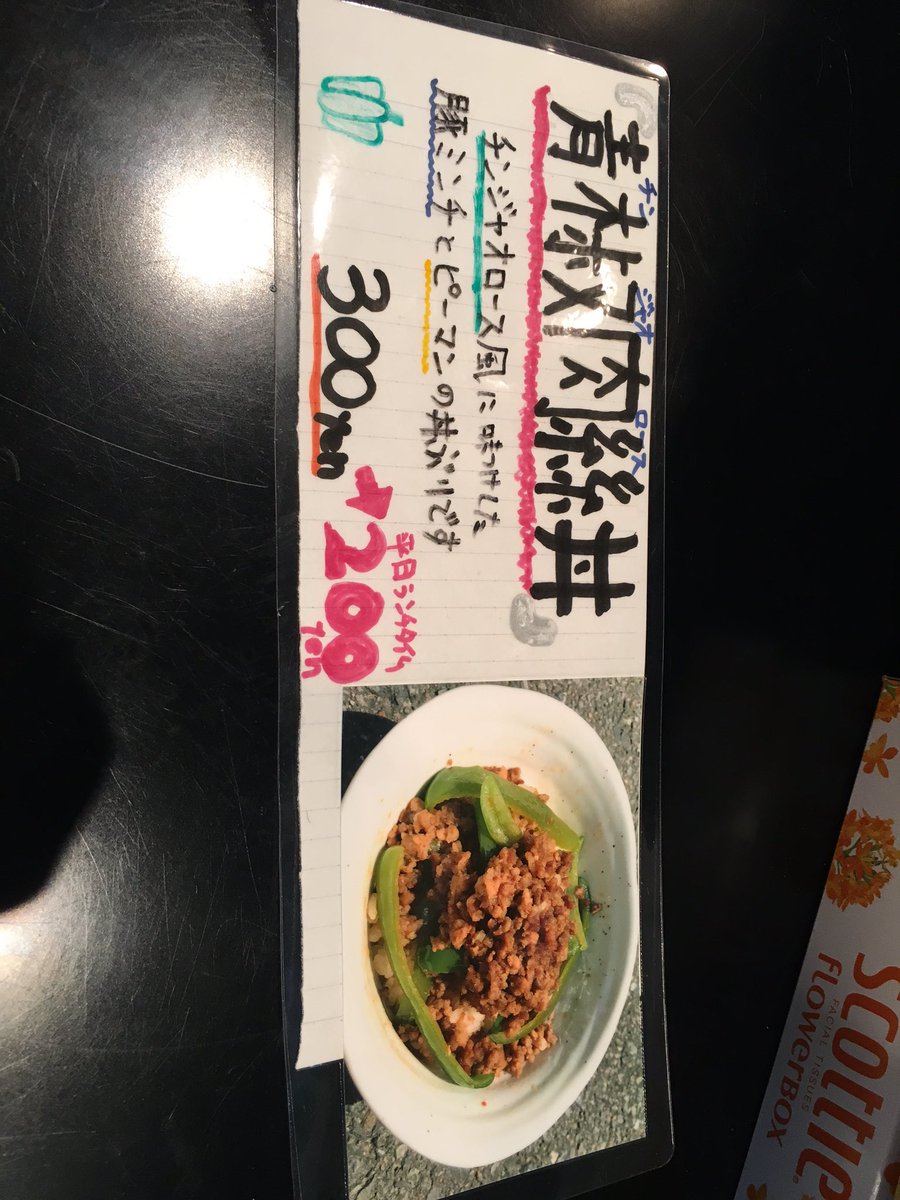 青椒肉絲丼
チン ジャオ ロース
チンジャオロース風に味つけした
豚ミンチとピーマンの丼ぶりです
300yen
平日ランチタイム
200
yen
SCOTTIE
FACIAL TISSUES
FLOWERBOX